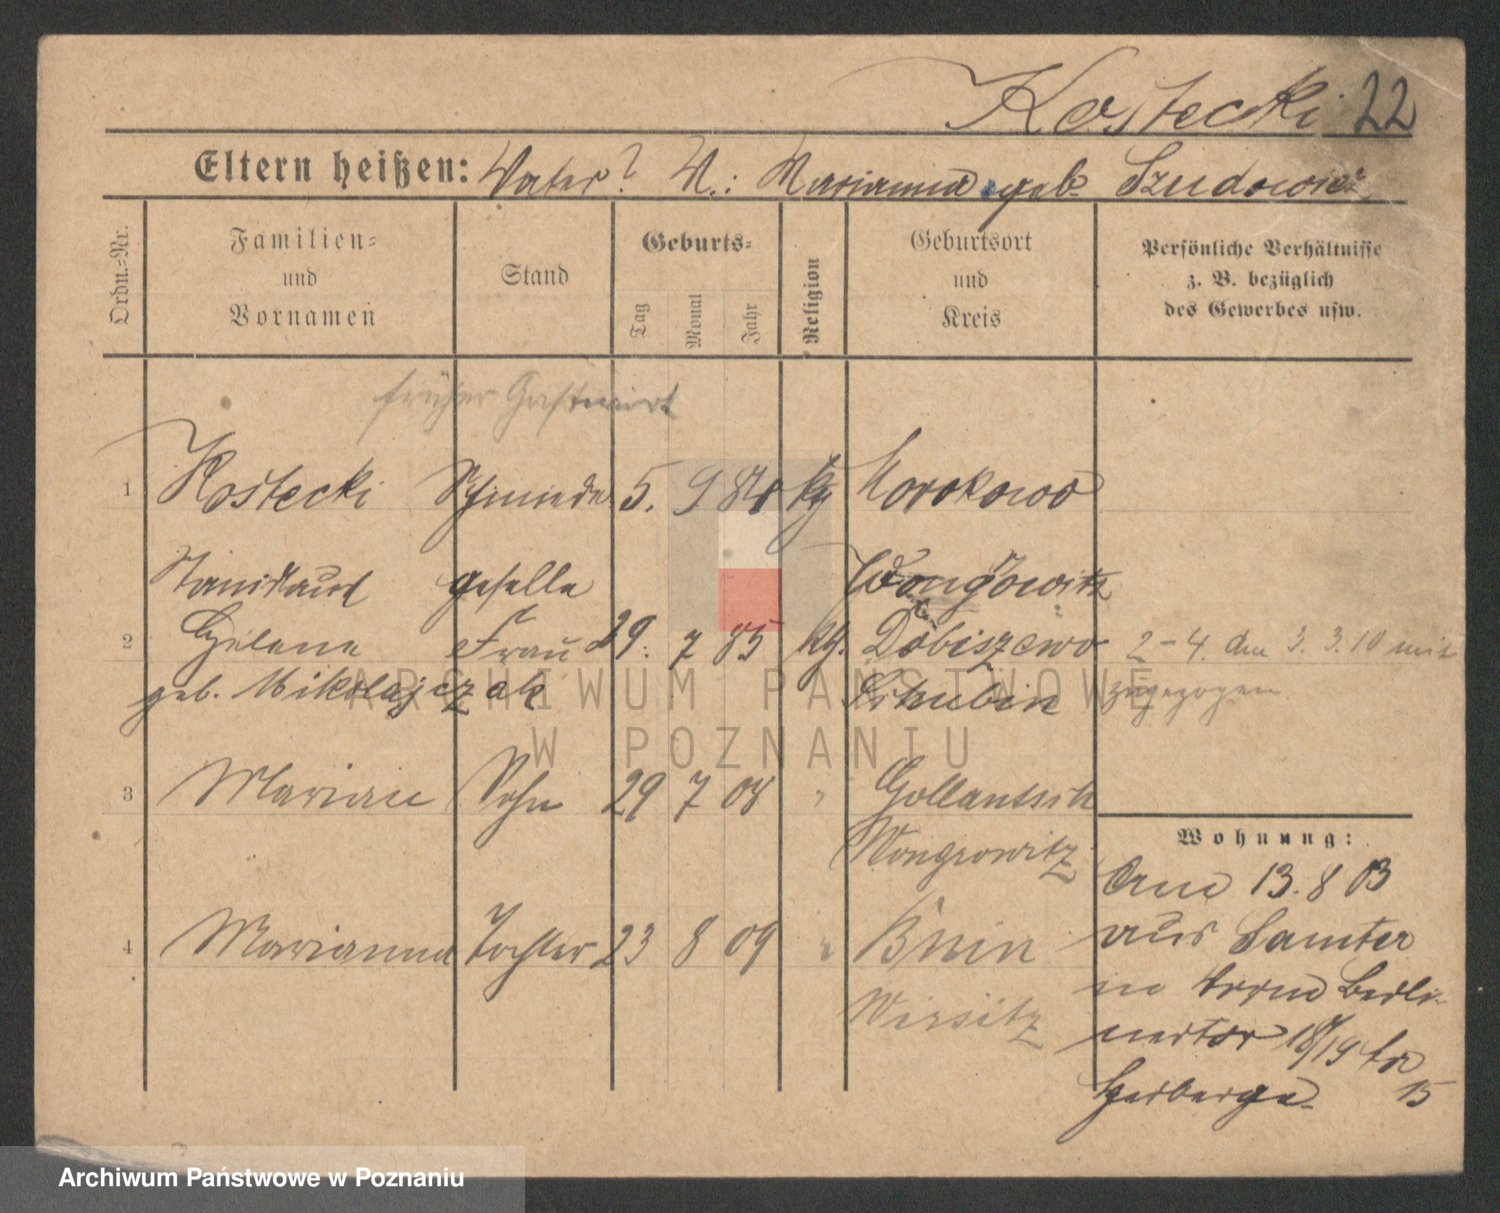 Kostecki 22
Eltern heißen: Vater? M.: Marianna geb. Szudowicz
Ordn.-Nr.
Familien-
und
Vornamen
Stand
Geburts-
Tag
Monat
Jahr
Religion
Geburtsort
und
Kreis
Persönliche Verhältnisse
z. B. bezüglich
des Gewerbes usw.
früher Gastwirt
1 Kostecki Schmiede 5. 9 84 kg Morakowo
Stanislaus geselle Wongrowitz
2 Helene Frau 29. 7 85 kg. Dobiszewo 2-4. am 3. 3. 10 mit
geb. Mikolajczak Schubin zugezogen
3 Marian Sohn 29 7 08 " Gollantsch
Wongrowitz
Wohnung:
Am 13. 8 03
4 Marianna Tochter 23 8 09 " Bnin aus Samter
Wirsitz Berli-
nertor 18/19 15
Herberge
ARCHIWUM PAŃSTWOWE
W POZNANIU
Archiwum Państwowe w Poznaniu